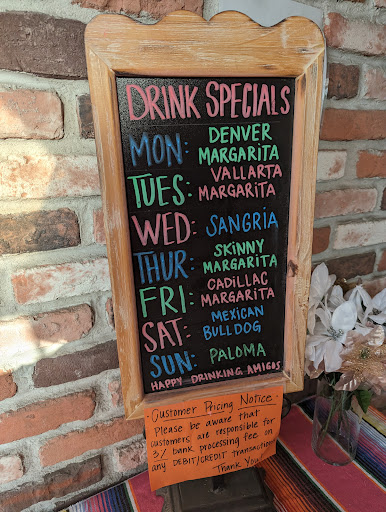 DRINK SPECIALS
MON: DENVER
MARGARITA
TUES: VALLARTA
MARGARITA
WED: SANGRIA
THUR: SKINNY
MARGARITA
FRI: CADILLAC
MARGARITA
SAT: MEXICAN
BULLDOG
SUN: PALOMA
HAPPY DRINKING AMIGOS
Customer Pricing Notice
Please be aware that
customers are responsible for
3% bank processing fee on
any DEBIT/CREDIT transaction
Thank You